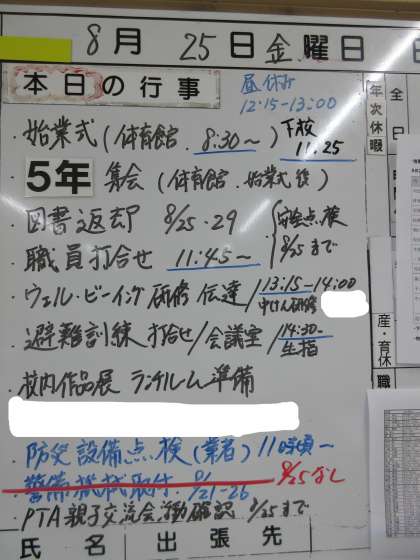 8月 25日 金曜日
本日の行事
昼休み
12:15-13:00
・始業式(体育館・8:30～) 下校 11:25
5年 集会 (体育館・始業式後)
・図書返却 8/25・29
安全点検 8/25まで
・職員打合せ 11:45～
・ウェル・ビーイング研修 伝達/13:15-14:00
・避難訓練 打合せ/会議室/14:30-
生指
・校内作品展 ランチルーム準備
・防災設備点検(業者)11時頃～
・警備機械取付 8/21-26 8/25なし
・PTA親子交流会活動確認 8/25まで
氏名 出張先
年次休暇
全
日
産・育休
職